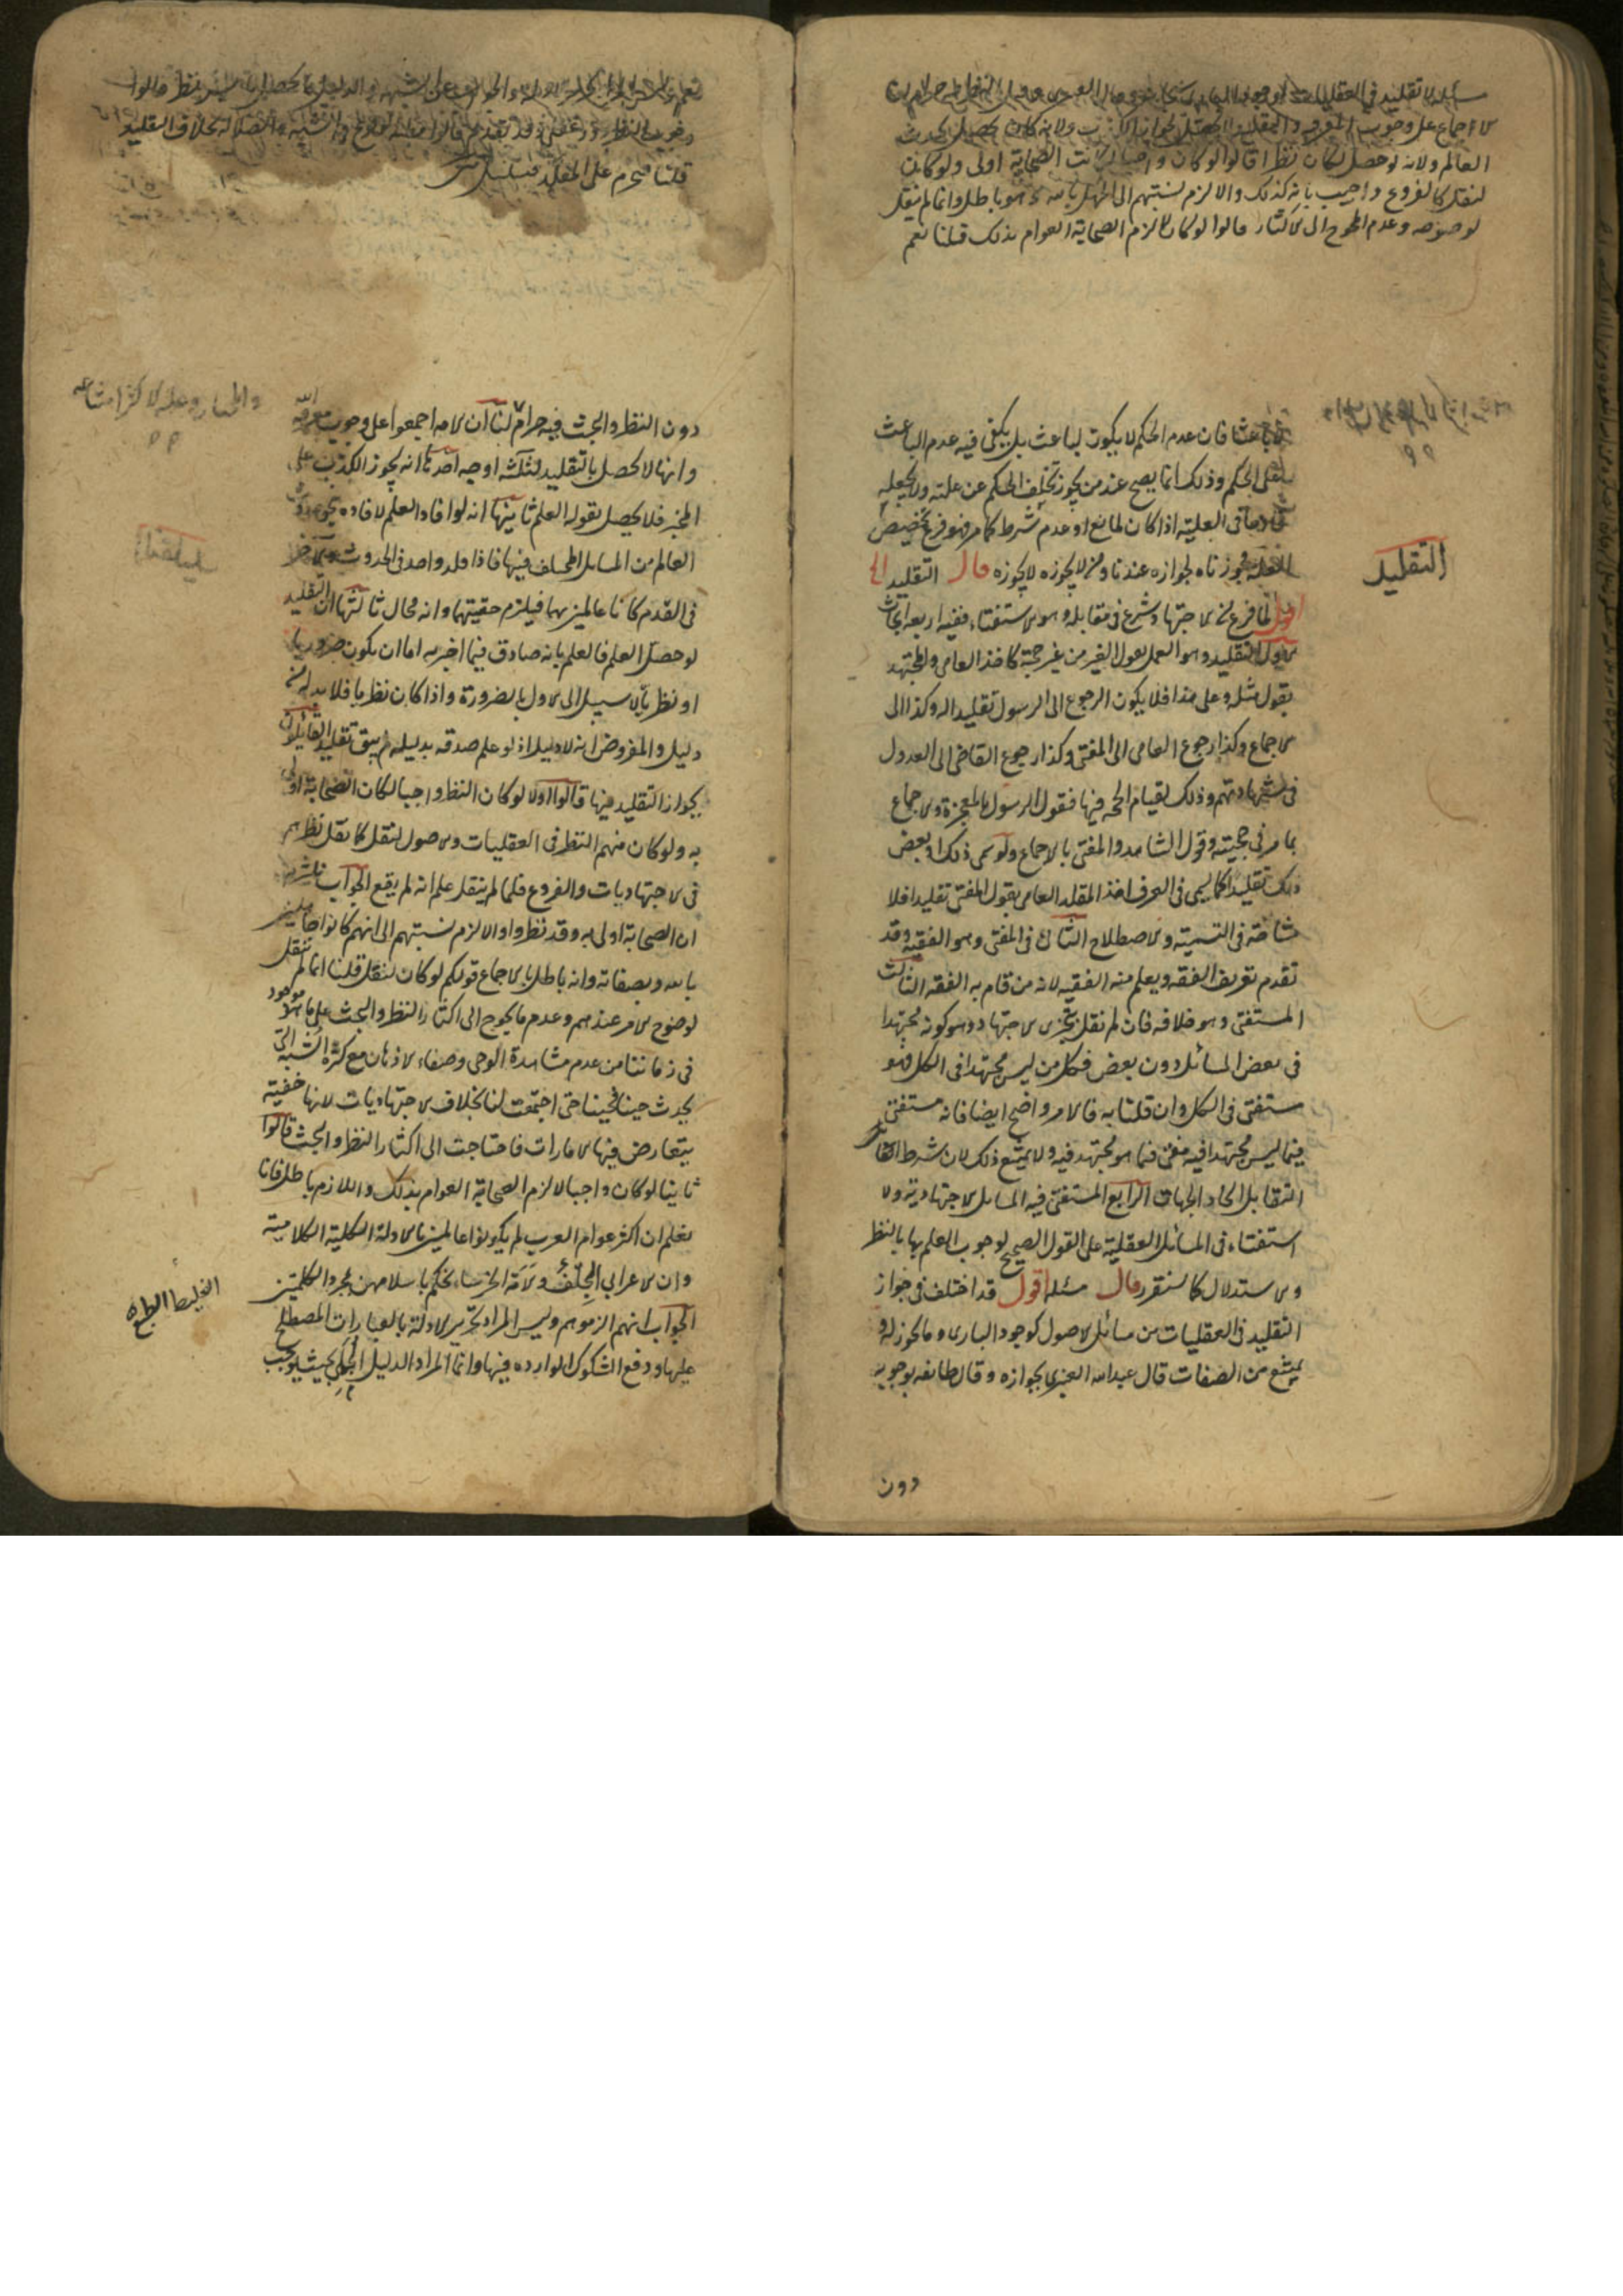 مسئلة لا تقليد في العقليات
الاجماع على وجوب المعرفة والتقليد لا يحصل لجواز الكذب ولانه كان يحصل بحدوث
العالم ولانه لو حصل لكان نظرا قالوا لو كان واجبا لكانت الصحابة اولى ولو كان
لنقل كالفروع واجيب بانه كذلك والا لزم نسبتهم الى الجهل بالله وهو باطل وانما لم ينقل
لوضوحه وعدم المحوج الى الاكثار قالوا لو كان لالزم الصحابة العوام بذلك قلنا نعم
باعثا فان عدم الحكم لا يكون لباعث بل يكفي فيه عدم الباعث
على الحكم وذلك انما يصح عند من يجوز تخلف الحكم عن علته ولا يجعله
قادحا في العلية اذا كان لمانع او عدم شرط كما مر فهو فرع تخصيص
العلة مجوزناه لجوازه عندنا ومن لا يجوزه لا يجوزه قال التقليد الخ
التقليد
اقول لما فرغ من الاجتهاد شرع في مقابله وهو الاستفتاء ففيه اربعة ابحاث
الاول التقليد وهو العمل بقول الغير من غير حجة كاخذ العامي والمجتهد
بقول مثله وعلى هذا فلا يكون الرجوع الى الرسول تقليدا له وكذا الى
الاجماع وكذا رجوع العامي الى المفتي وكذا رجوع القاضي الى العدول
في شهادتهم وذلك لقيام الحجة فيها فقول الرسول بالمعجزة والاجماع
بما مر في حجيته وقول الشاهد والمفتي بالاجماع ولو سمي ذلك او بعض
ذلك تقليدا كما يسمى في العرف اخذ المقلد العامي بقول المفتي تقليدا فلا
مشاحة في التسمية والاصطلاح الثاني في المفتي وهو الفقيه وقد
تقدم تعريف الفقه ويعلم منه الفقيه لانه من قام به الفقه الثالث
المستفتي وهو خلافه فان لم نقل بتجزى الاجتهاد وهو كونه مجتهدا
في بعض المسائل دون بعض فكل من ليس مجتهدا في الكل فهو
مستفتي في الكل وان قلنا به فالامر واضح ايضا فانه مستفتي
فيما ليس مجتهدا فيه مفتي فيما هو مجتهد فيه ولا يمتنع ذلك لان شرط
التقابل اتحاد الجهات الرابع المستفتى فيه المسائل الاجتهادية ولا
استفتاء في المسائل العقلية على القول الصحيح لوجوب العلم بها بالنظر
والاستدلال كما سنقرر قال مسئلة اقول قد اختلف في جواز
التقليد في العقليات من مسائل الاصول كوجود الباري وما يجوز له و
يمتنع من الصفات قال عبدالله العنبري بجوازه وقال طائفة بوجوبه
دون
قلنا فيحرم على المقلد فيتسلسل
دون النظر والبحث فيه حرام لنا ان الامة اجمعوا على وجوب معرفة الله
وانها لا تحصل بالتقليد لثلثة اوجه احدها انه يجوز الكذب على
المخبر فلا يحصل بقوله العلم ثانيها انه لو افاد العلم لافاده بنحو حدوث
العالم من المسائل المختلف فيها فاذا قلد واحد في الحدوث
في القدم كانا عالمين بهما فيلزم حقيتهما وانه محال ثالثها ان التقليد
لو حصل العلم فالعلم بانه صادق فيما اخبر به اما ان يكون ضروريا
او نظريا لا سبيل الى الاول بالضرورة واذا كان نظريا فلا بد له من
دليل والمفروض انه لا دليل اذ لو علم صدقه بدليله لم يبق تقليد القائلون
بجواز التقليد فيها قالوا اولا لو كان النظر واجبا لكان الصحابة اولى
به ولو كان منهم النظر في العقليات والاصول لنقل كما نقل نظرهم
في الاجتهاديات والفروع فلما لم ينقل علم انه لم يقع الجواب
ان الصحابة اولى به وقد نظروا والا لزم نسبتهم الى انهم كانوا جاهلين
بالله وبصفاته وانه باطل بالاجماع قولكم لو كان لنقل قلنا انما لم ينقل
لوضوح الامر عندهم وعدم ما يحوج الى اكثار النظر والبحث على ما هو موجود
في زماننا من عدم مشاهدة الوحي وصفاء الاذهان مع كثرة الشبه التي
يحدث حينا فحينا حتى اجتمعت لنا بخلاف الاجتهاديات لانها خفية
يتعارض فيها الامارات فاحتاجت الى اكثار النظر والبحث قالوا
ثانيا لو كان واجبا لالزم الصحابة العوام بذلك واللازم باطل فانا
نعلم ان اكثر عوام العرب لم يكونوا عالمين بالادلة الكلية الكلامية
وان الاعرابي الجلف والامة الخرساء يحكم باسلامهن بمجرد الكلمتين
الغليظ الطبع
الجواب انهم الزموهم وليس المراد تحرير الادلة بالعبارات المصطلح
عليها ودفع الشكوك الواردة فيها وانما المراد الدليل الجملي بحيث يوجب